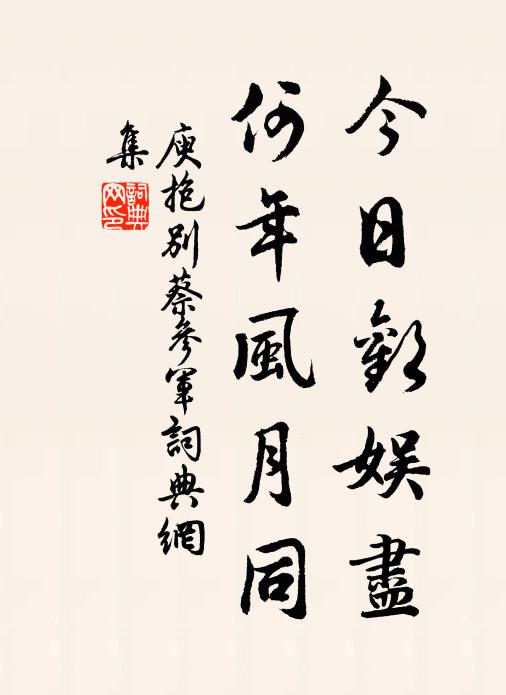 今日歡娛盡
何年風月同
庾抱別蔡參軍詞典網
集
詞典
网印